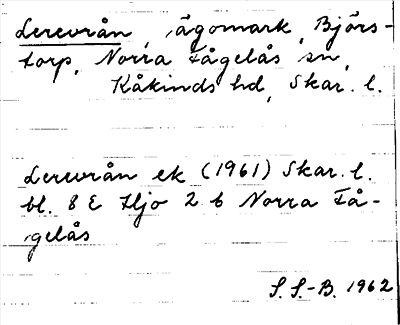 Lerevrån, ägomark, Björs-
torp, Norra Fågelås sn,
Kåkinds hd, Skar. l.
Lerevrån ek (1961) Skar. l.
bl. 8 E Hjo 2 b Norra Få-
gelås
S. S.-B. 1962